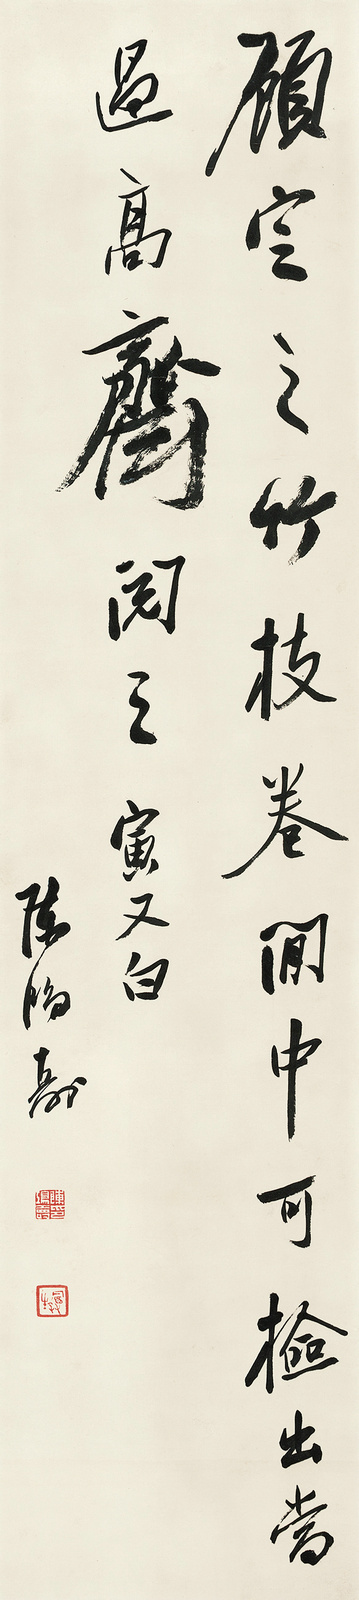 顧定之竹枝卷閒中可檢出當
過高齋閱之 寅又白
陳鴻壽